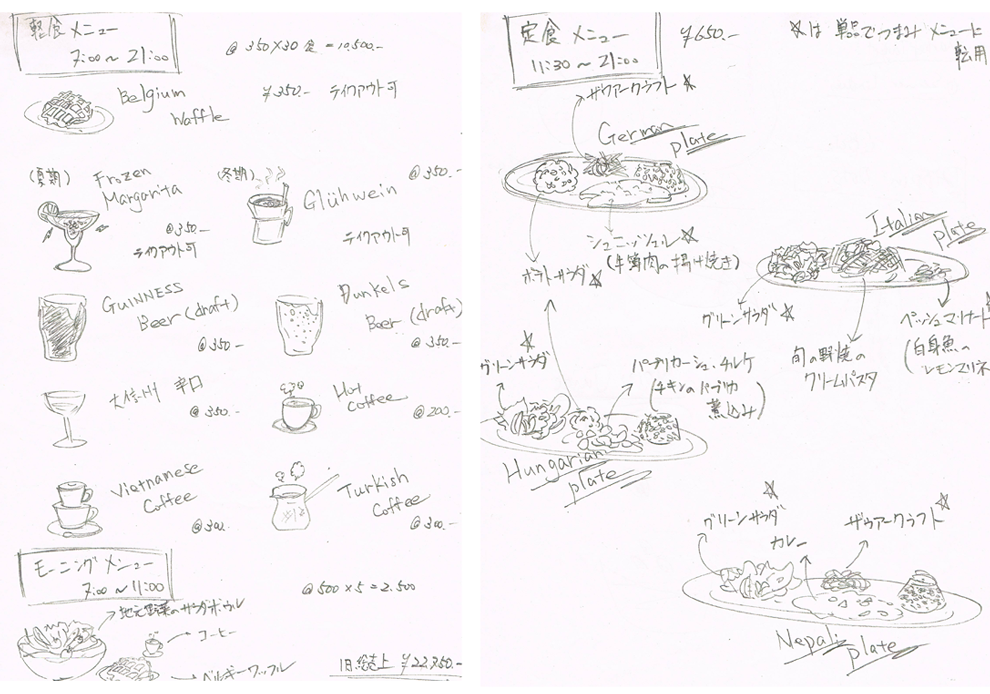 軽食メニュー
7:00～21:00
@350×30食=10,500.-
Belgium
Waffle
¥350.- テイクアウト可
(夏期)
Frozen
Margarita
@350.-
テイクアウト可
(冬期)
Glühwein
@350.-
テイクアウト可
GUINNESS
Beer (draft)
@350-
Dunkels
Beer (draft)
@350.-
大信州 辛口
@350.-
Hot
Coffee
@200.-
Vietnamese
Coffee
@300.-
Turkish
Coffee
@300.-
モーニングメニュー
7:00～11:00
@500×5=2.500
地元野菜のサラダボウル
コーヒー
ベルギーワッフル
1日総売上 ¥22,750.-
定食メニュー
11:30～21:00
¥650.-
☆は単品でつまみメニューに
転用
ザウアークラフト☆
German
plate
シュニッツェル☆
(牛薄肉の揚げ焼き)
ポテトサラダ☆
Italian
plate
グリーンサラダ☆
旬の野菜の
クリームパスタ
ペッシュマリナート☆
(白身魚の
レモンマリネ
グリーンサラダ☆
パプリカーシュ・チルケ
(チキンのパプリカ
煮込み)
Hungarian
plate
グリーンサラダ☆
カレー
ザウアークラフト☆
Nepali
plate